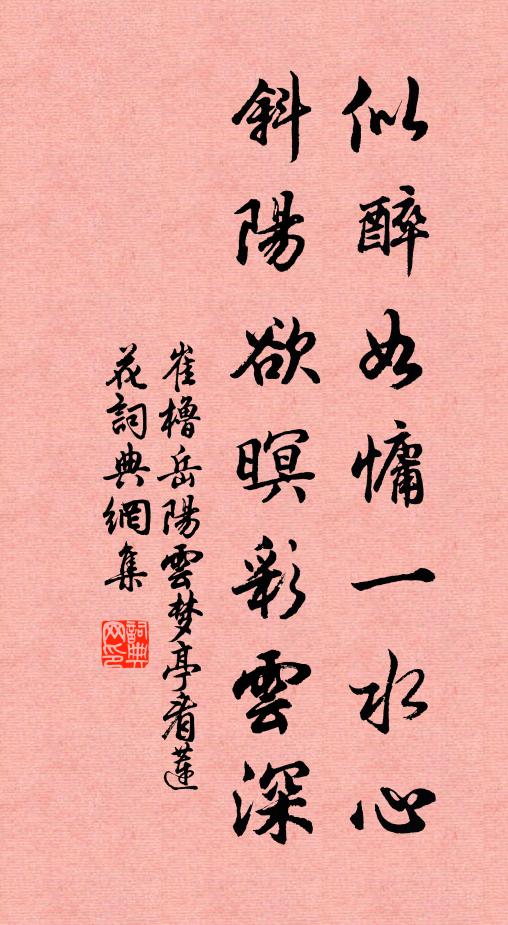 似醉如慵一水心
斜陽欲暝彩雲深
崔櫓岳陽雲梦亭看蓮
花詞典網集
詞典网印